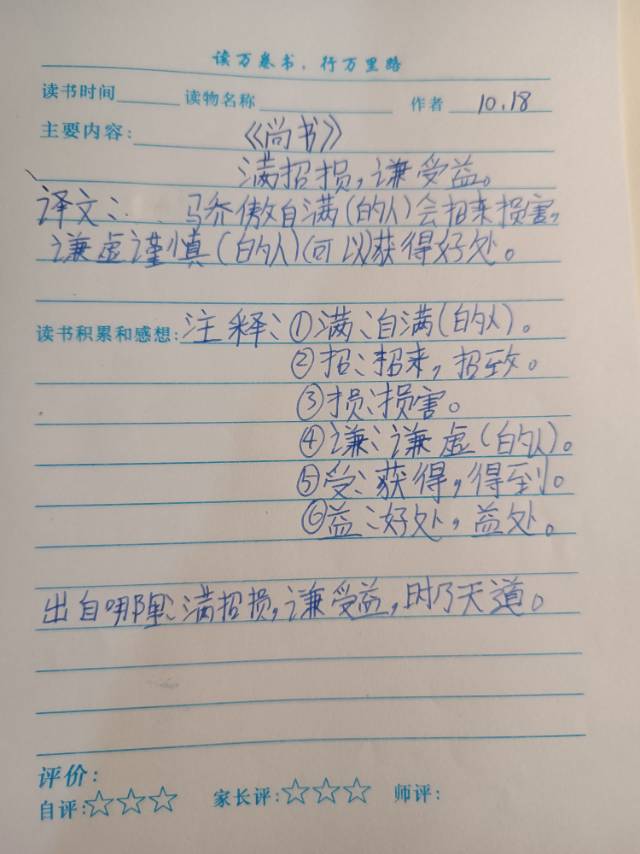 读万卷书，行万里路
读书时间 读物名称 作者 10.18
主要内容： 《尚书》
满招损，谦受益。
译文： 骄傲自满(的人)会招来损害，
谦虚谨慎(的人)(可以)获得好处。
读书积累和感想：注释：①满：自满(的人)。
②招：招来，招致。
③损：损害。
④谦：谦虚(的人)。
⑤受：获得，得到。
⑥益：好处，益处。
出自哪里：满招损，谦受益，时乃天道。
评价：
自评：☆☆☆ 家长评：☆☆☆ 师评：